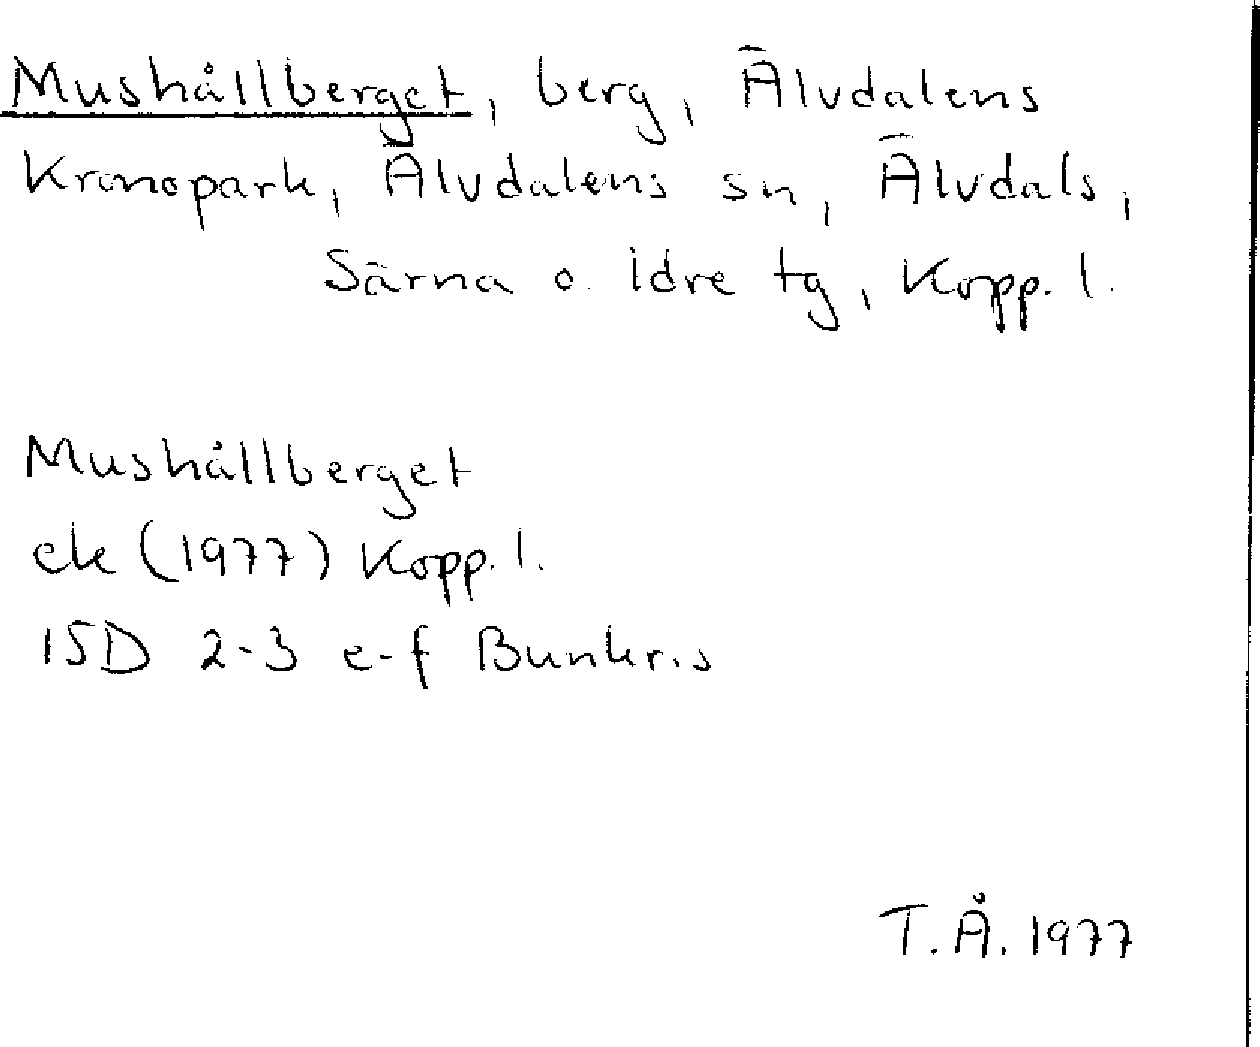 Mushållberget, berg, Älvdalens
Kronopark, Älvdalens sn, Älvdals,
Särna o. Idre tg, Kopp. l.
Mushållberget
ek (1977) Kopp. l.
15D 2-3 e-f Bunkris
T.Å. 1977